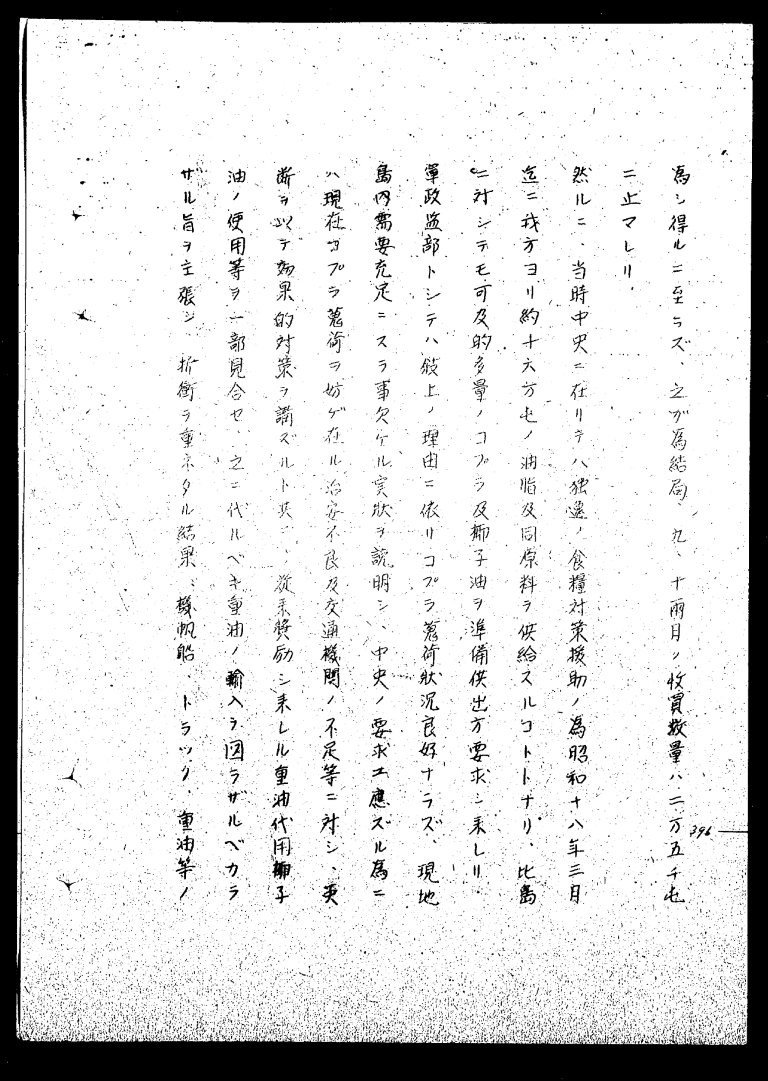 為シ得ルニ至ラズ、之ガ為結局、九、十両月ノ收買数量ハ二万五千屯
ニ止マレリ、
然ルニ、当時中央ニ在リテハ独逸ノ食糧対策援助ノ為昭和十八年三月
迄ニ我方ヨリ約十六万屯ノ油脂及同原料ヲ供給スルコトトナリ、比島
ニ対シテモ可及的多量ノコプラ及椰子油ヲ準備供出方要求シ来レリ、
軍政監部トシテハ敍上ノ理由ニ依リコプラ蒐荷状況良好ナラズ、現地
島内需要充足ニスラ事欠ケル実状ヲ説明シ、中央ノ要求ニ應ズル為ニ
ハ現在コプラ蒐荷ヲ妨ゲ在ル治安不良及交通機関ノ不足等ニ対シ、英
断ヲ以テ効果的対策ヲ講ズルト共ニ、従来奨励シ来レル重油代用椰子
油ノ使用等ヲ一部見合セ、之ニ代ルベキ重油ノ輸入ヲ図ラザルベカラ
ザル旨ヲ主張シ、折衝ヲ重ネタル結果、機帆船、トラック、重油等ノ
396